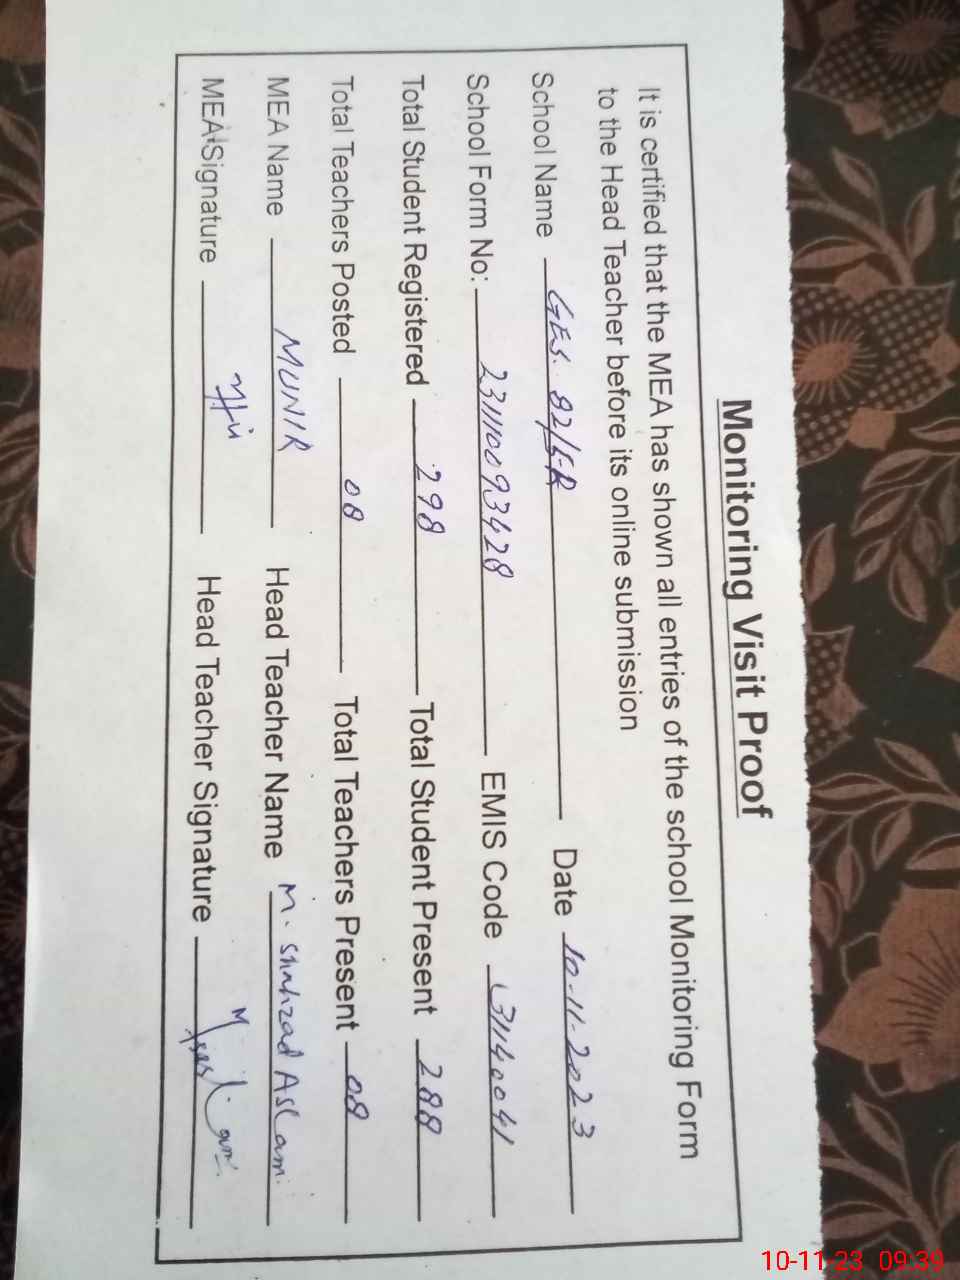 Monitoring Visit Proof
It is certified that the MEA has shown all entries of the school Monitoring Form
to the Head Teacher before its online submission
School Name GES. 82/5-R Date 10-11-2023
School Form No: 231110093428 EMIS Code 31140041
Total Student Registered 298 Total Student Present 288
Total Teachers Posted 08 Total Teachers Present 08
MEA Name MUNIR Head Teacher Name M. Shahzad Aslam.
MEA Signature Head Teacher Signature
10-11-23 09:39